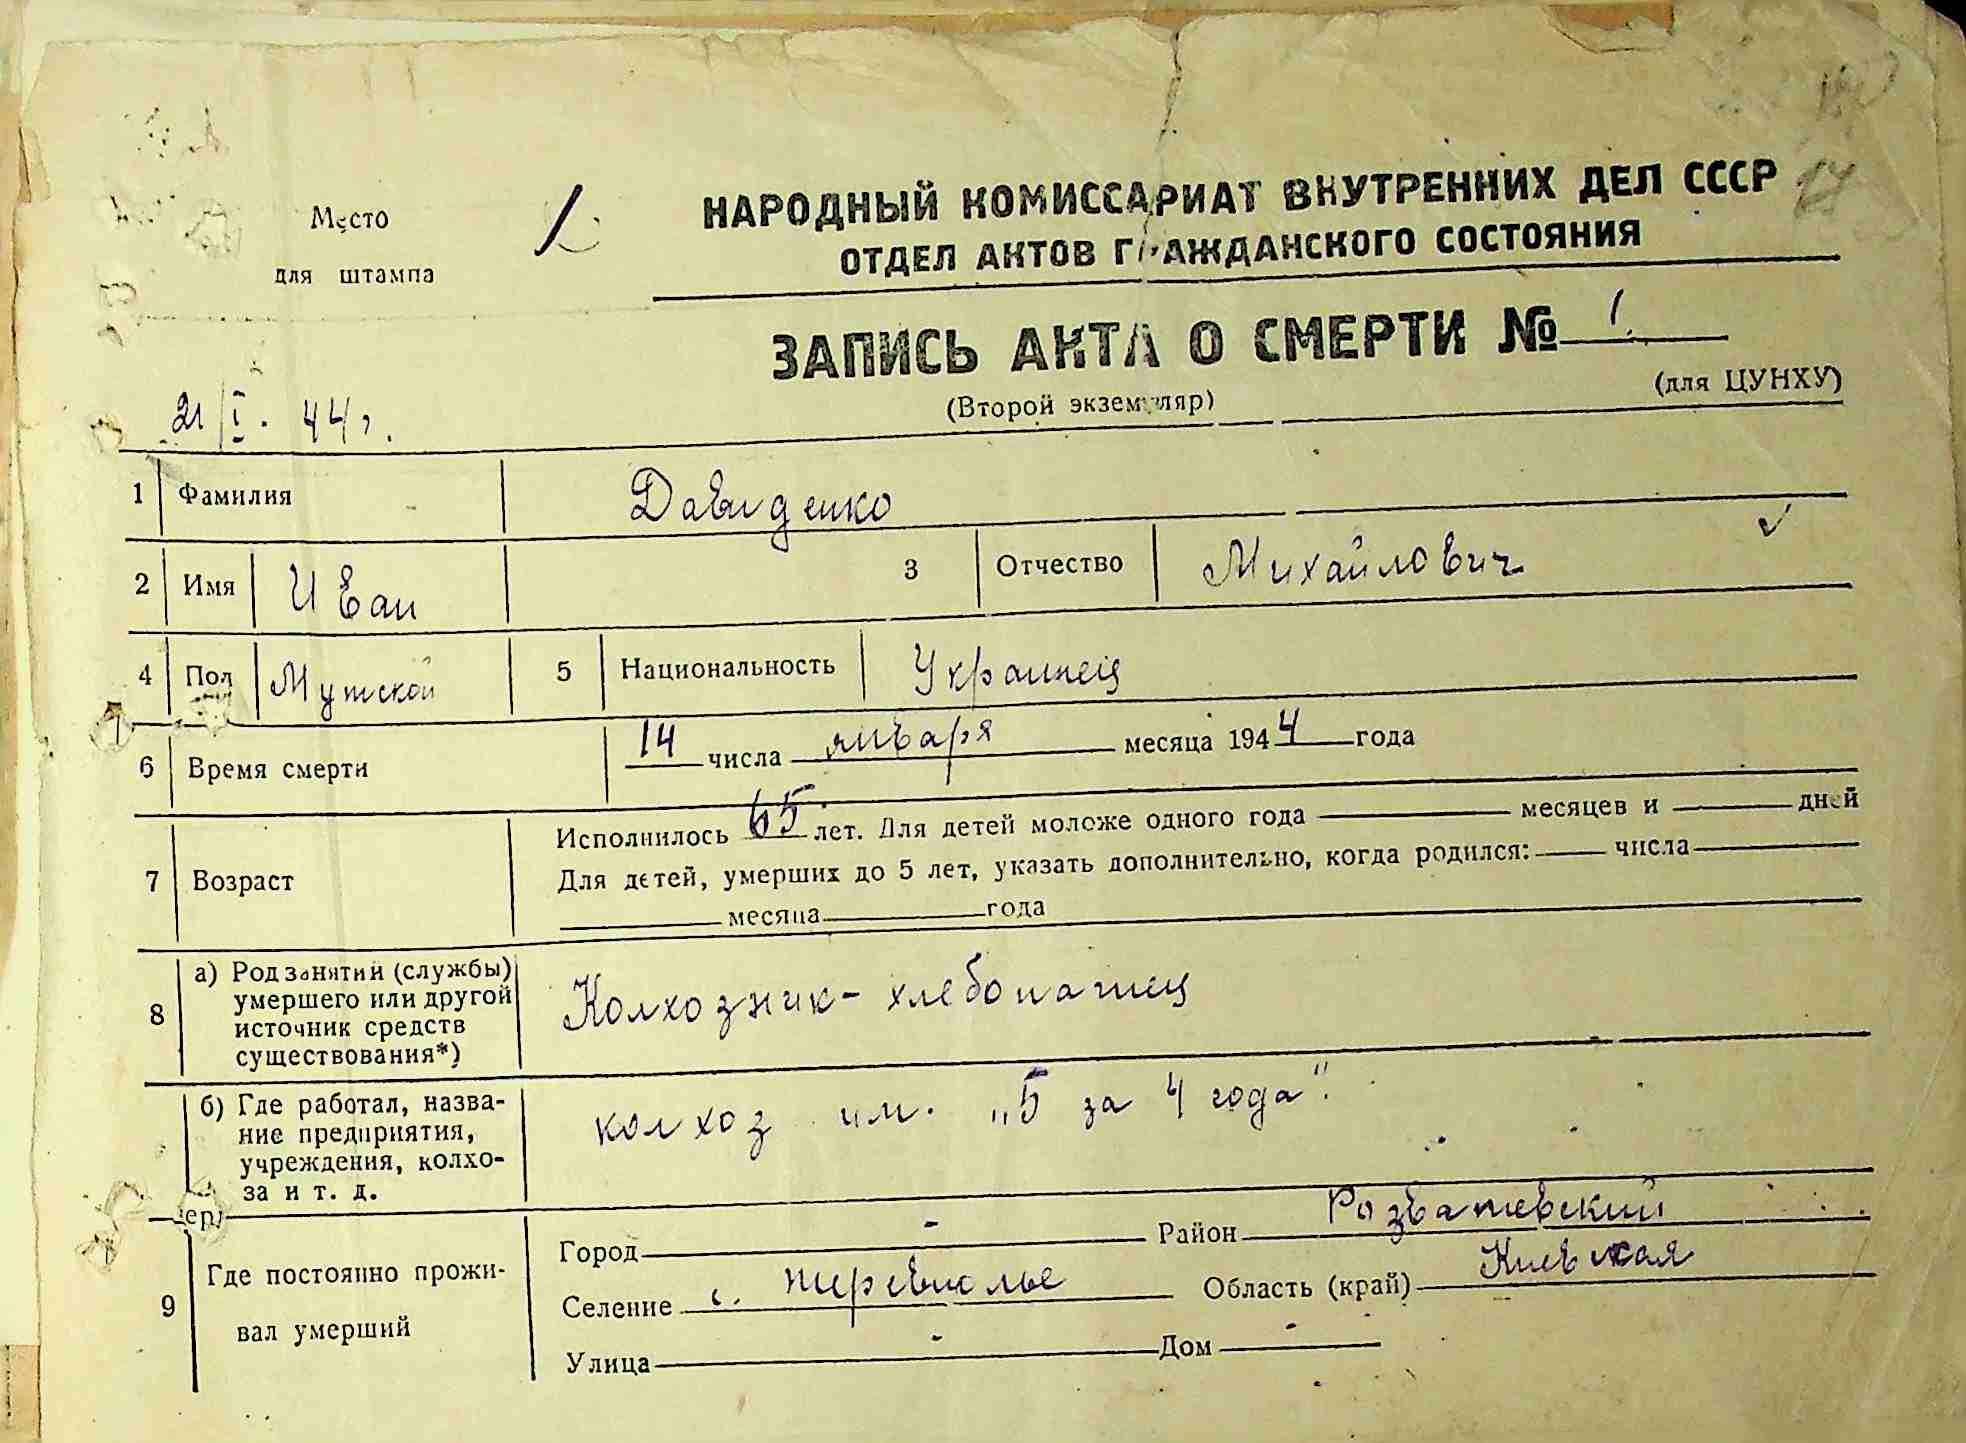 НАРОДНЫЙ КОМИССАРИАТ ВНУТРЕННИХ ДЕЛ СССР 17
Место 1
для штампа
ОТДЕЛ АКТОВ ГРАЖДАНСКОГО СОСТОЯНИЯ
ЗАПИСЬ АКТА О СМЕРТИ № 1.
(Второй экземпляр) (для ЦУНХУ)
21/I. 44 г.
1 Фамилия Давиденко
2 Имя Иван 3 Отчество Михайлович
4 Пол Мужской 5 Национальность Украинец
6 Время смерти 14 числа января месяца 1944 года
7 Возраст
Исполнилось 65 лет. Для детей моложе одного года месяцев и дней
Для детей, умерших до 5 лет, указать дополнительно, когда родился: числа
месяца года
8 а) Род занятий (службы)
умершего или другой
источник средств
существования*)
Колхозник-хлебопашец
б) Где работал, назва-
ние предприятия,
учреждения, колхо-
за и т. д.
колхоз им. „5 за 4 года".
9 Где постоянно прожи-
вал умерший
Город - Район Розважевский
Селение с. Область (край) Киевская
Улица - Дом -